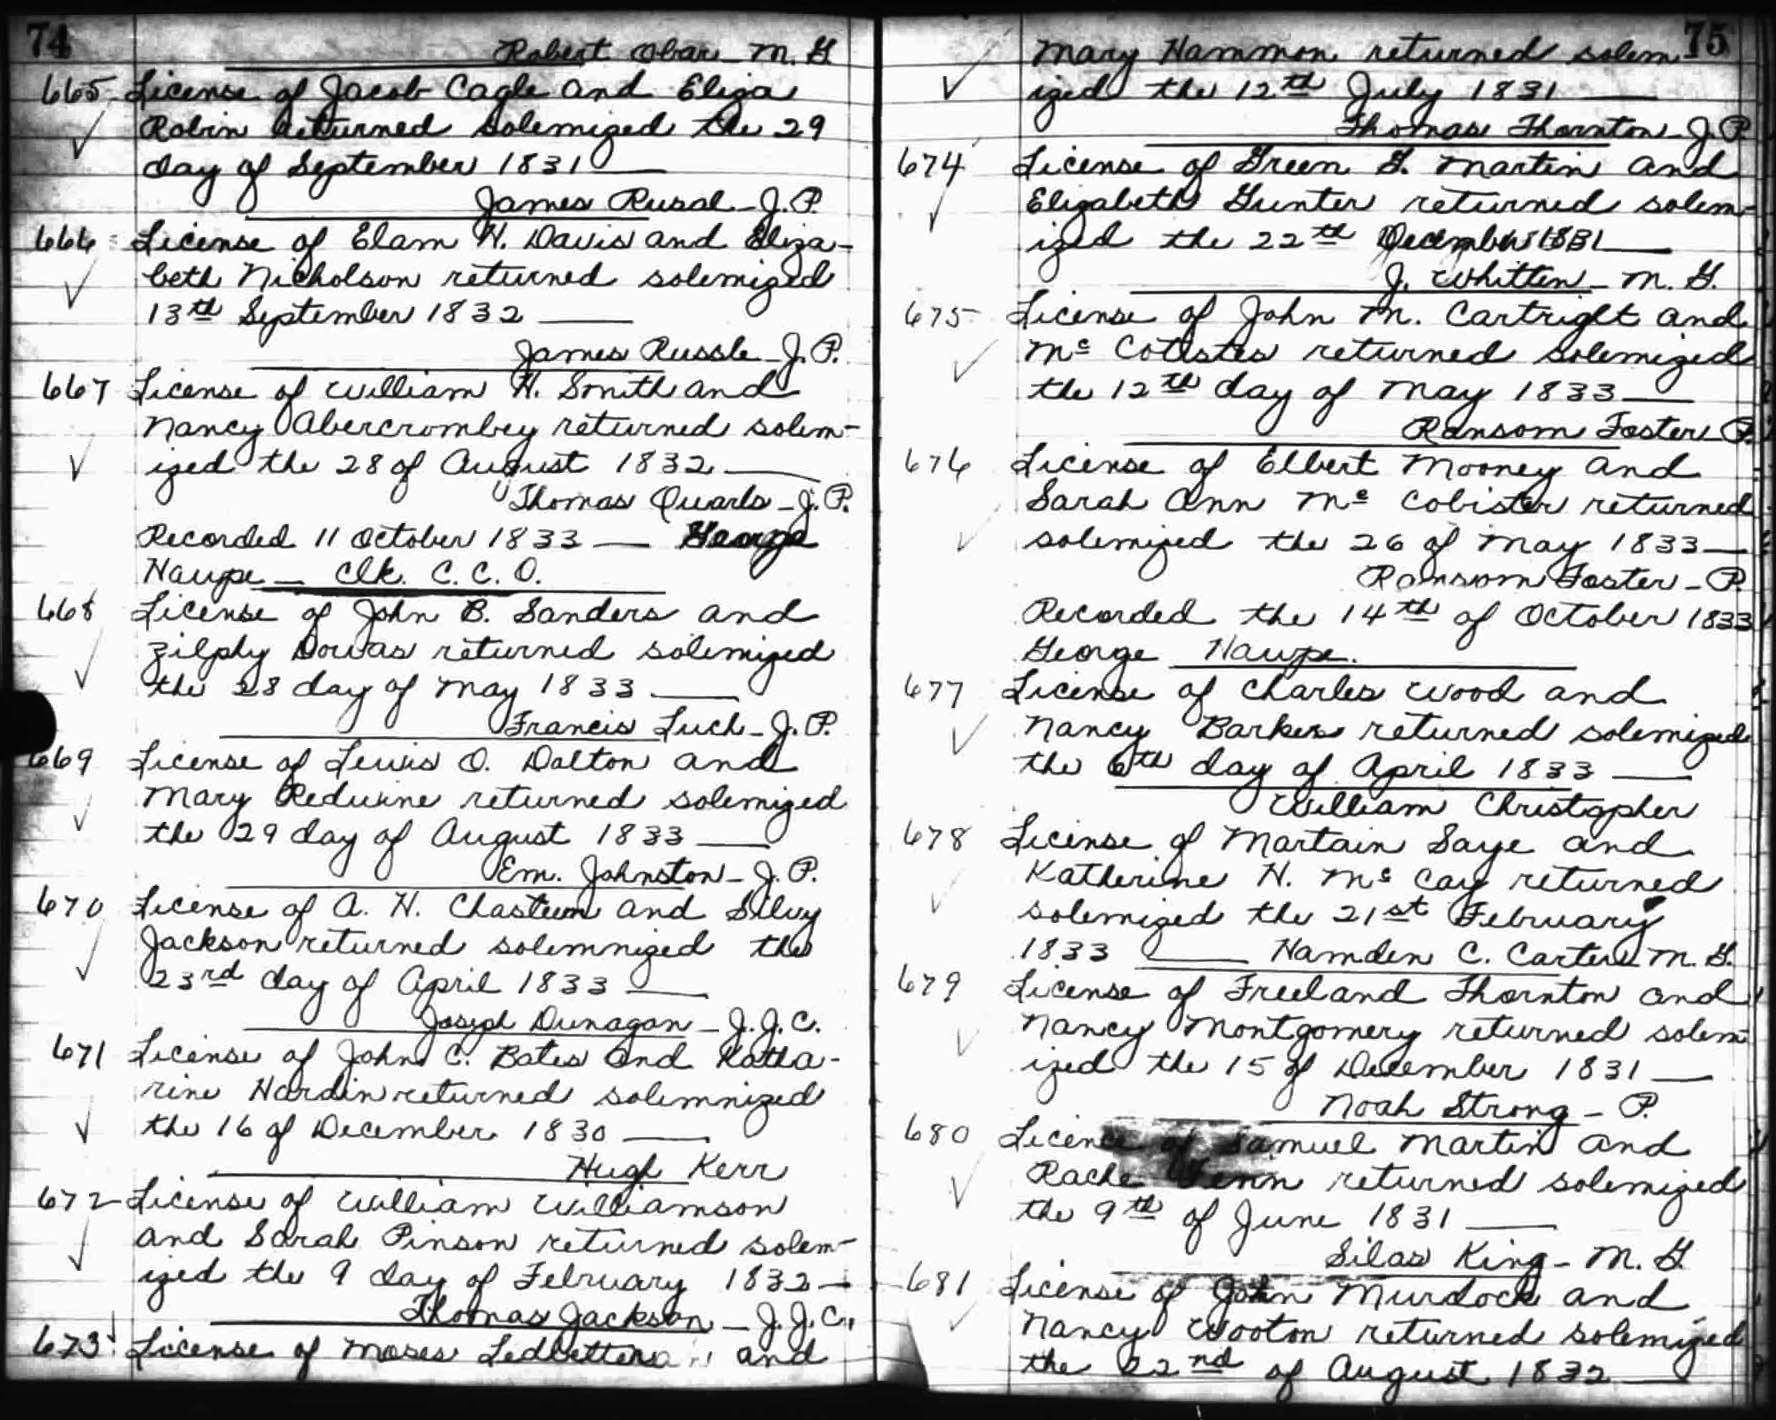 74
Robert Obar - M. G.
665 License of Jacob Cagle and Eliza
Robin returned solemized the 29
day of September 1831
James Rusal - J. P.
666 License of Elam H. Davis and Eliza-
beth Nicholson returned solemized
13th September 1832
James Russle - J. P.
667 License of William H. Smith and
Nancy Abercrombey returned solem-
ized the 28 of August 1832
Thomas Quarls - J. P.
Recorded 11 October 1833 — George
Haupe — Clk. C. C. O.
668 License of John B. Sanders and
Zilphy returned solemized
the 28 day of May 1833
Francis Luch - J. P.
669 License of Lewis O. Dalton and
Mary Reduine returned solemized
the 29 day of August 1833
Em. Johnston - J. P.
670 License of A. H. Chasteen and Silvy
Jackson returned solemnized the
23rd day of April 1833
Joseph Dunagan - J. J. C.
671 License of John C. Bates and Katha-
rine Hardin returned solemnized
the 16 of December 1830
Hugh Kerr
672 License of William Williamson
and Sarah Pinson returned solem-
ized the 9 day of February 1832 —
Thomas Jackson - J. J. C.
673 License of Moses Ledbetter and
75
Mary Hammon returned solem
ized the 12th July 1831
Thomas Thornton - J. P.
674 License of Green G. Martin and
Elizabeth Gunter returned solem-
ized the 22th December 1831
J. Whitten - M. G.
675 License of John M. Cartright and
Mc returned solemized
the 12th day of May 1833
Ransom Foster P.
676 License of Elbert Mooney and
Sarah Ann Mc Cobister returned
solemized the 26 of May 1833 —
Ransom Foster - P.
Recorded the 14th of October 1833
George Haupe.
677 License of Charles Wood and
Nancy Barker returned solemized
the 6th day of April 1833
William Christopher
678 License of Martain Saye and
Katherine H. Mc Cay returned
solemized the 21st February
1833 — Hamden C. Carter M. G.
679 License of Freeland Thornton and
Nancy Montgomery returned solem-
ized the 15 of December 1831
Noah Strong - P.
680 Licence of Samuel Martin and
Rache returned solemized
the 9th of June 1831
Silas King - M. G.
681 License of John Murdock and
Nancy Wooton returned solemized
the 22nd of August 1832